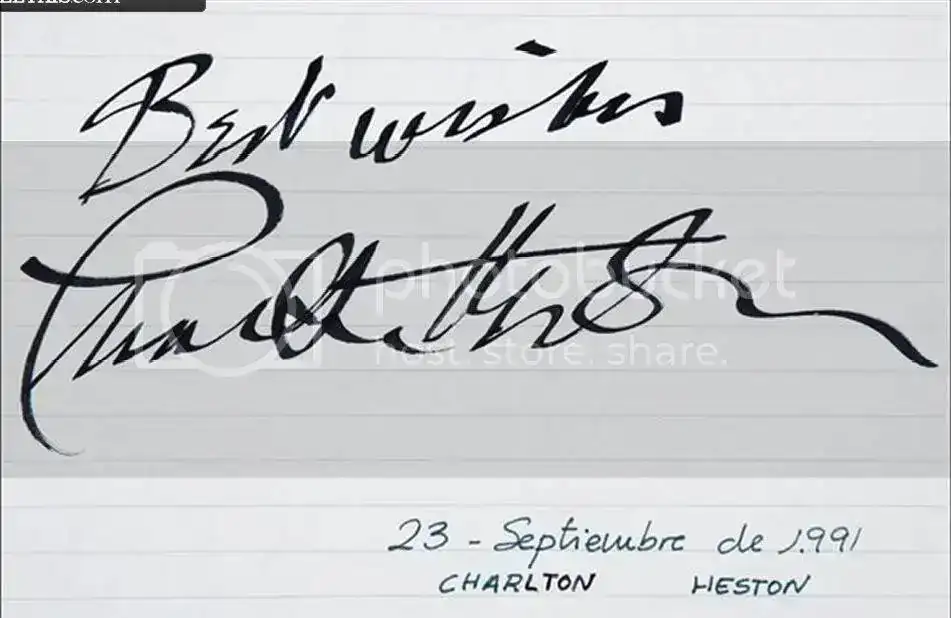 Best wishes
Charlton Heston
photobucket
host. store. share.
23 - Septiembre de 1.991
CHARLTON HESTON